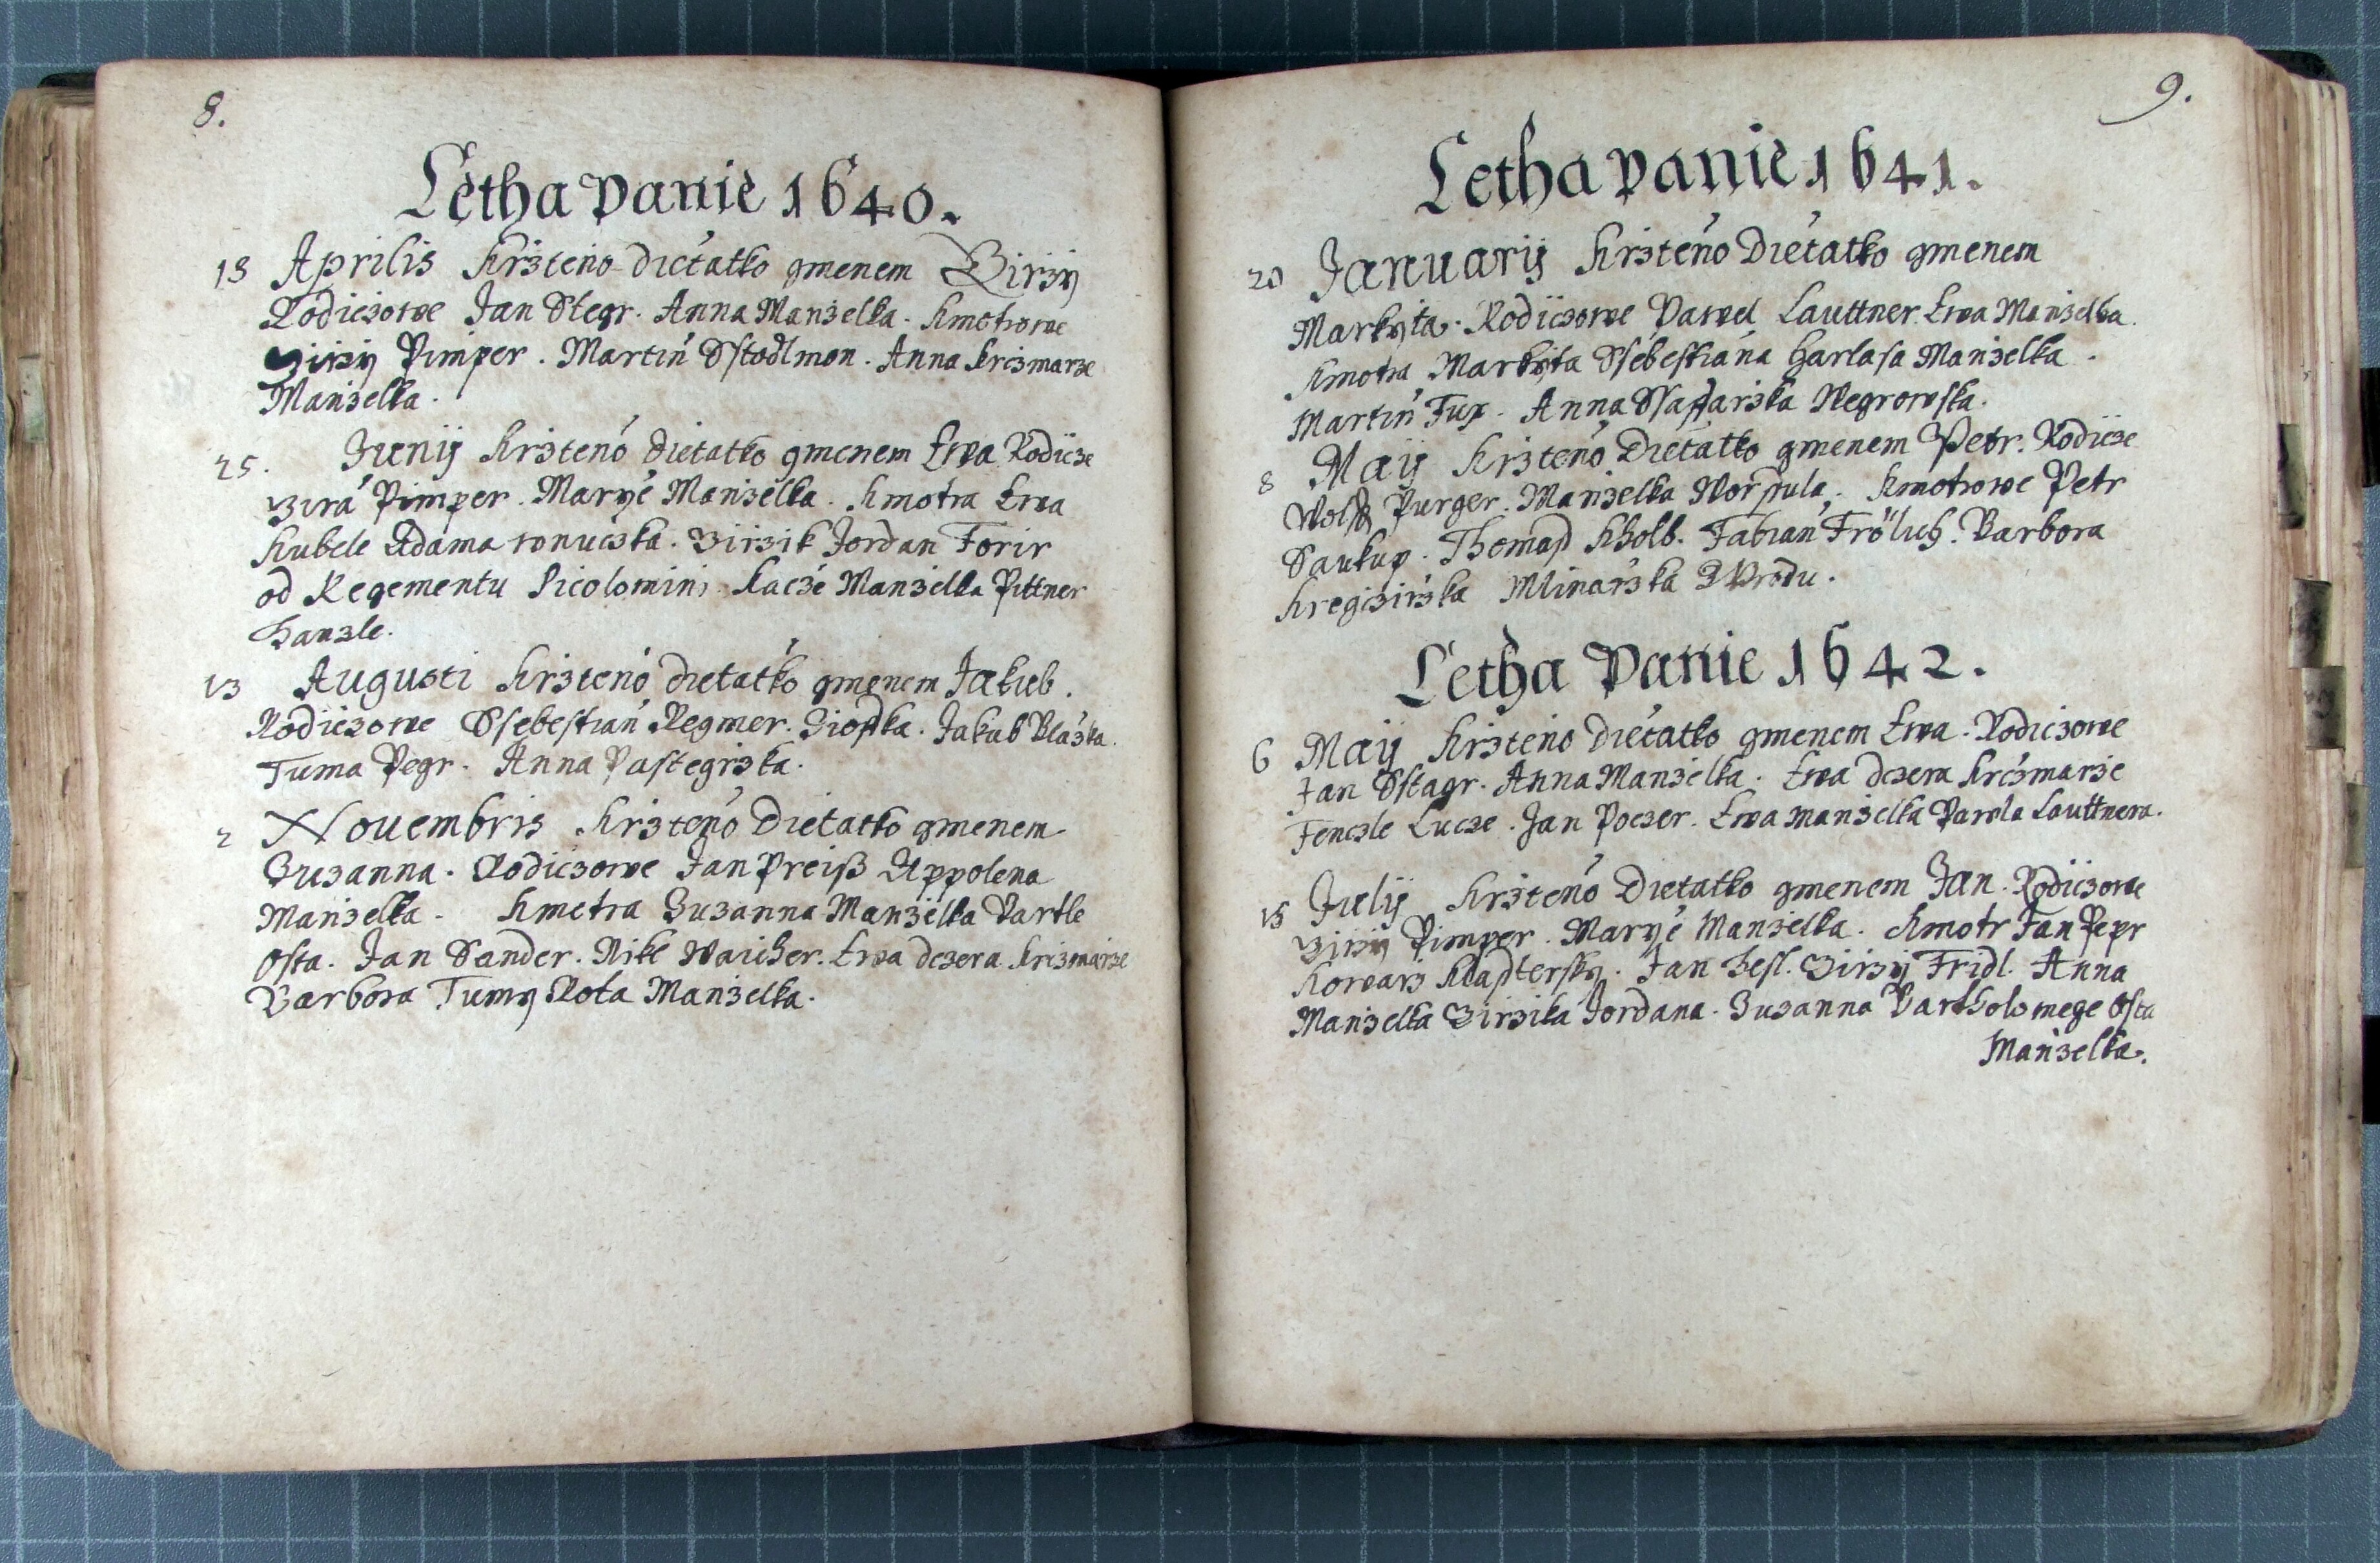 8.
Letha Panie 1640.
18 Aprilis Krzteno dietatko gmenem Girzy
Rodiczowe Jan Stegr. Anna Manzelka. Kmotrowe
Girzy Pimper. Martin Sstodlmon. Anna Krczmarze
Manzelka.
25. Junij Krzteno dietatko gmenem Ewa Rodicze
Gira Pimper. Marye Manzelka. Kmotra Ewa
Kubele Adama wnuczka. Girzik Jordan Forir
od Regementu Picolomini. Kacze Manzelka Pittner
Hanzle.
13 Augusti Krzteno dietatko gmenem Jakub.
Rodiczowe Ssebestian Regmer. Jakub Blaska.
Tuma Pegr. Anna Pastegrzka.
2 Nouembris Krzteno Dietatko gmenem
Zuzanna. Rodiczowe Jan Preiß Appolena
Manzelka. Kmotra Zuzanna Manzelka Bartle
Osta. Jan Sander. Nikl Waicher. Ewa dczera Krczmarze
Barbora Tumy Rota Manzelka.
9.
Letha Panie 1641.
20 Januarij Krzteno Dietatko gmenem
Markyta. Rodiczowe Pawel Lauttner Ewa Manzelka.
Kmotra Markyta Ssebestiana Harlasa Manzelka.
Martin Fux. Anna Negrowska.
8 Maij Krzteno Dietatko gmenem Petr. Rodicze
Wolff Purger. Manzelka Worssula. Kmotrowe Petr
Saukup. Thomass Kholb. Fabian Frölich. Barbora
Kregczirzka Mlinarzka Z Brodu.
Letha Panie 1642.
6 Maij Krzteno Dietatko gmenem Ewa. Rodiczowe
Jan Sstagr. Anna Manzelka. Ewa dczera Krczmarze
Fenczle Lucze. Jan Poczer. Ewa manzelka Pawla Lauttnera.
15 Julij Krzteno Dietatko gmenem Jan. Rodiczowe
Girzy Pimper. Marye Manzelka. Kmotr Jan Pepr
Kowarz Klasstersky. Jan Hesl. Girzy Fridl. Anna
Manzelka Girzika Jordana. Zuzanna Bartholomege Osta
Manzelka.